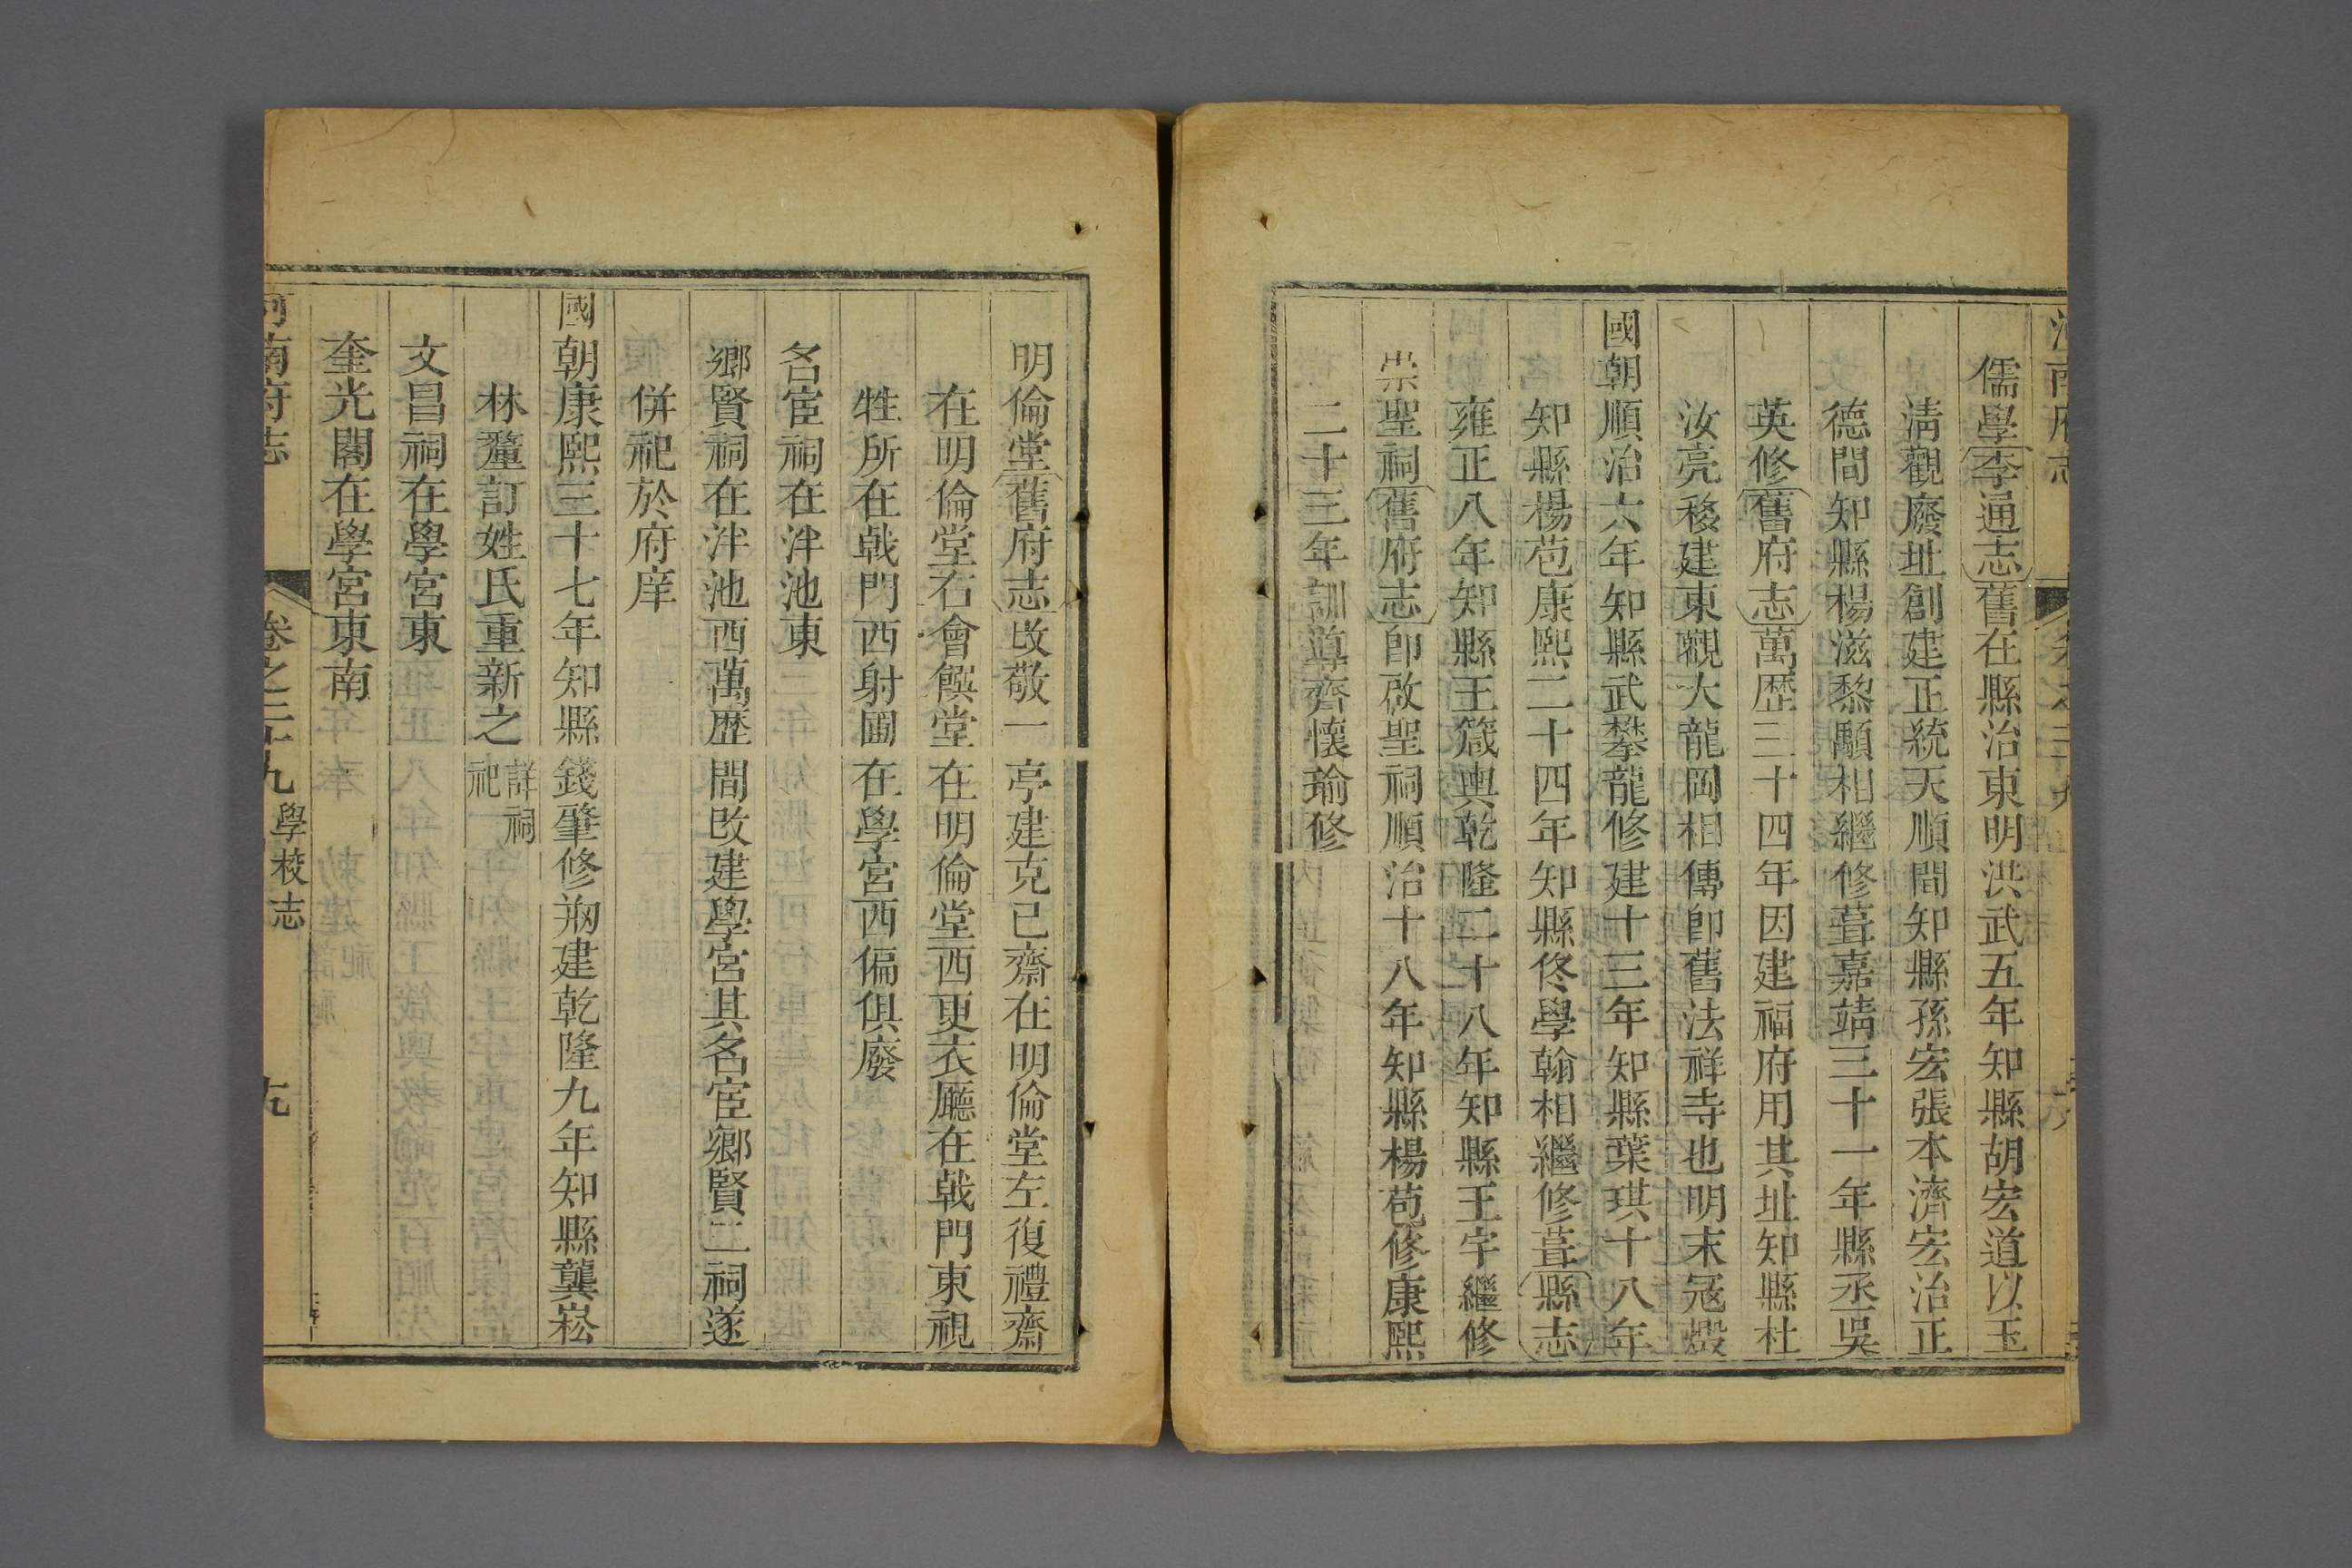 儒學李通志舊在縣治東明洪武五年知縣胡宏道以玉
淸觀廢址創建正統天順間知縣孫宏張本濟宏治正
德間知縣楊滋黎顒相繼修葺嘉靖三十一年縣丞吳
英修舊府志萬歴三十四年因建福府用其址知縣杜
汝亮移建東觀大龍岡相傳卽舊法祥寺也明末冦燬
國朝順治六年知縣武攀龍修建十三年知縣葉琪十八年
知縣楊苞康熙二十四年知縣佟學翰相繼修葺縣志
雍正八年知縣王箴輿乾隆二十八年知縣王宇繼修
崇聖祠舊府志卽啟聖祠順治十八年知縣楊苞修康熙
二十三年訓導齊懷瑜修
明倫堂舊府志改敬一亭建克已齋在明倫堂左復禮齋
在明倫堂右會饌堂在明倫堂西更衣廳在戟門東視
牲所在戟門西射圃在學宮西偏俱廢
名宦祠在泮池東
鄉賢祠在泮池西萬歴間改建學宮其名宦鄉賢二祠遂
併祀於府庠
國朝康熙三十七年知縣錢肇修刱建乾隆九年知縣龔崧
林釐訂姓氏重新之詳祠祀
文昌祠在學宮東
奎光閣在學宮東南
河南府志 卷之二十九 學校志 九